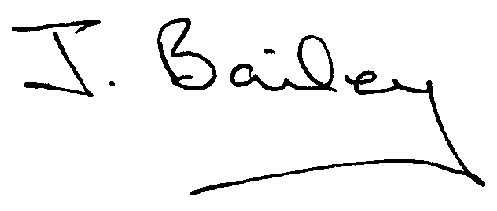 J. Bailey